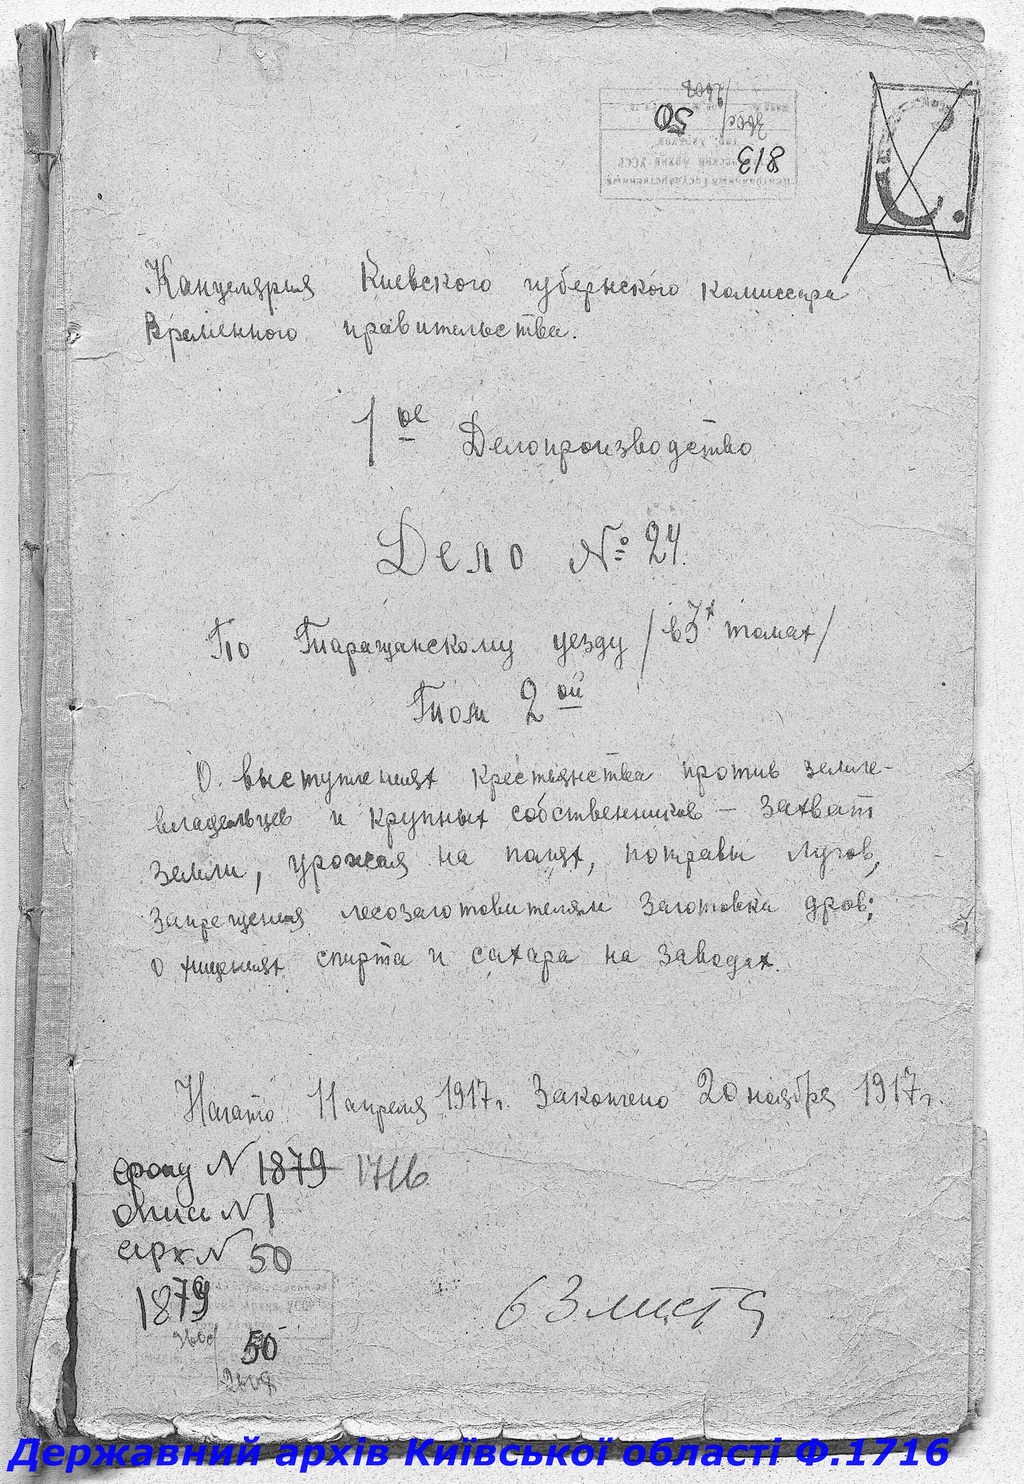 813
50
Канцелярия Киевского губернского комиссара
Временного правительства.
1ое Делопроизводство
Дело № 24.
По Таращанскому уезду /в 3х томах/
Том 2ой
О выступлениях крестьянства против земле-
владельцев и крупных собственников – захват
земли, урожая на полях, потравы лугов,
запрещения лесозаготовителям заготовки дров;
о хищениях спирта и сахара на заводах.
Начато 11 апреля 1917г. Закончено 20 ноября 1917г.
фонду N 1879 1716
опис N 1
арк N 50
1879
50
63 листа
Державний архів Київської області Ф.1716